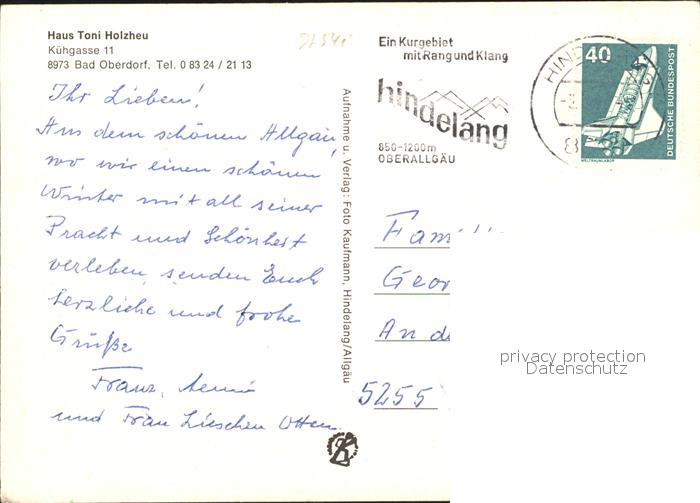 Haus Toni Holzheu
Kühgasse 11
8973 Bad Oberdorf, Tel. 0 83 24 / 21 13
Ihr Lieben!
Aus dem schönen Allgäu,
wo wir einen schönen
Winter mit all seiner
Pracht und Schönheit
verleben, senden Euch
herzliche und frohe
Grüße
Franz,
und Frau Lieschen Otten
Aufnahme u. Verlag: Foto Kaufmann, Hindelang/Allgäu
Ein Kurgebiet
mit Rang und Klang
hindelang
850-1200m
OBERALLGÄU
HINDE
8
40
DEUTSCHE BUNDESPOST
WELTRAUMLABOR
Fam
Geor
An de
5255
privacy protection
Datenschutz